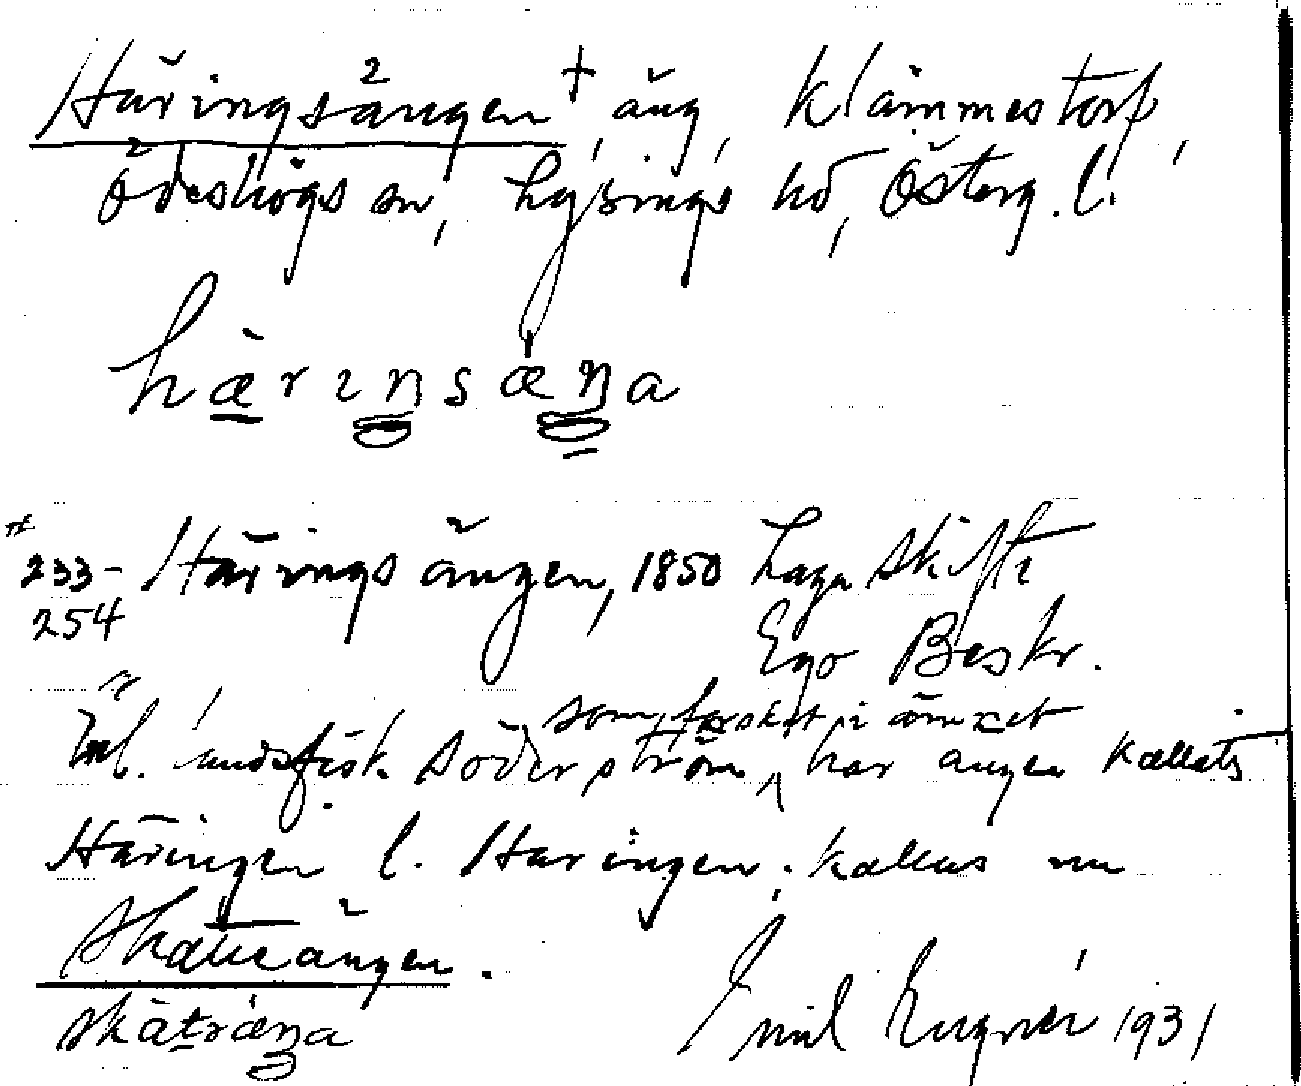 Häringsängen †, äng, Klämmestorp,
Ödeshögs sn, Lysings hd, Österg. l.
härıŋsæŋa
233- Häringsängen, 1850 Laga Skifte
254
Ego Beskr.
som forskat i ämnet
Enl. landsfisk. Söderström har ängen kallats
Häringen l. Haringen; kallas nu
Skateängen.
skātræŋa
Emil 1931